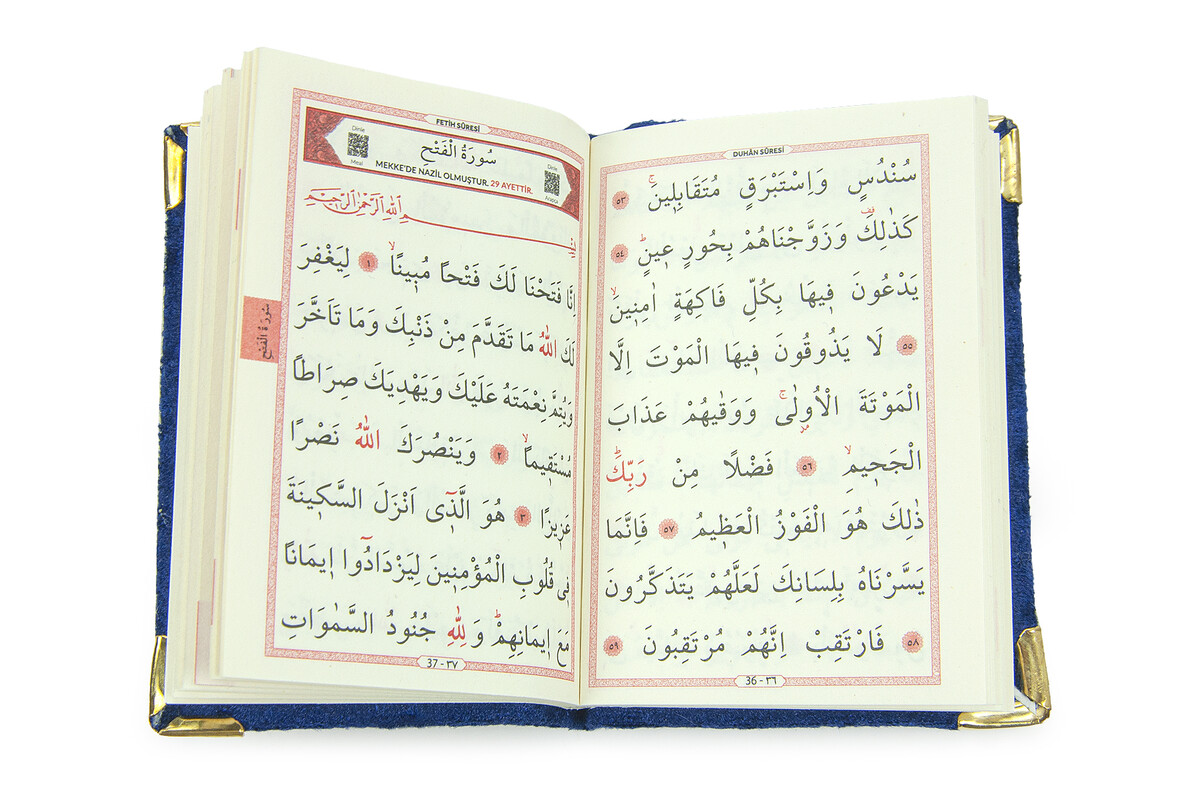 DUHÂN SÛRESİ
سُنْدُسٍ وَاِسْتَبْرَقٍ مُتَقَابِل۪ينَۚ ﴿٥٣﴾
كَذٰلِكَ۠ وَزَوَّجْنَاهُمْ بِحُورٍ ع۪ينٍۜ ﴿٥٤﴾
يَدْعُونَ ف۪يهَا بِكُلِّ فَاكِهَةٍ اٰمِن۪ينَۙ
﴿٥٥﴾ لَا يَذُوقُونَ ف۪يهَا الْمَوْتَ اِلَّا
الْمَوْتَةَ الْاُو۫لٰىۚ وَوَقٰيهُمْ عَذَابَ
الْجَح۪يمِۙ ﴿٥٦﴾ فَضْلًا مِنْ رَبِّكَۜ
ذٰلِكَ هُوَ الْفَوْزُ الْعَظ۪يمُ ﴿٥٧﴾ فَاِنَّمَا
يَسَّرْنَاهُ بِلِسَانِكَ لَعَلَّهُمْ يَتَذَكَّرُونَ
﴿٥٨﴾ فَارْتَقِبْ اِنَّهُمْ مُرْتَقِبُونَ ﴿٥٩﴾
36 - ٣٦
FETİH SÛRESİ
Dinle
Meal
سُورَةُ الْفَتْحِ
MEKKE'DE NAZİL OLMUŞTUR. 29 AYETTİR.
Dinle
Arapça
بِسْمِ اللّٰهِ الرَّحْمٰنِ الرَّح۪يمِ
اِنَّا فَتَحْنَا لَكَ فَتْحًا مُب۪ينًاۙ ﴿١﴾ لِيَغْفِرَ
لَكَ اللّٰهُ مَا تَقَدَّمَ مِنْ ذَنْبِكَ وَمَا تَاَخَّرَ
وَيُتِمَّ نِعْمَتَهُ عَلَيْكَ وَيَهْدِيَكَ صِرَاطًا
مُسْتَق۪يمًاۙ ﴿٢﴾ وَيَنْصُرَكَ اللّٰهُ نَصْرًا
عَز۪يزًا ﴿٣﴾ هُوَ الَّذ۪ٓى اَنْزَلَ السَّك۪ينَةَ
ف۪ى قُلُوبِ الْمُؤْمِن۪ينَ لِيَزْدَادُٓوا ا۪يمَانًا
مَعَ ا۪يمَانِهِمْۜ وَلِلّٰهِ جُنُودُ السَّمٰوَاتِ
37 - ٣٧
سُورَةُ الْفَتْحِ